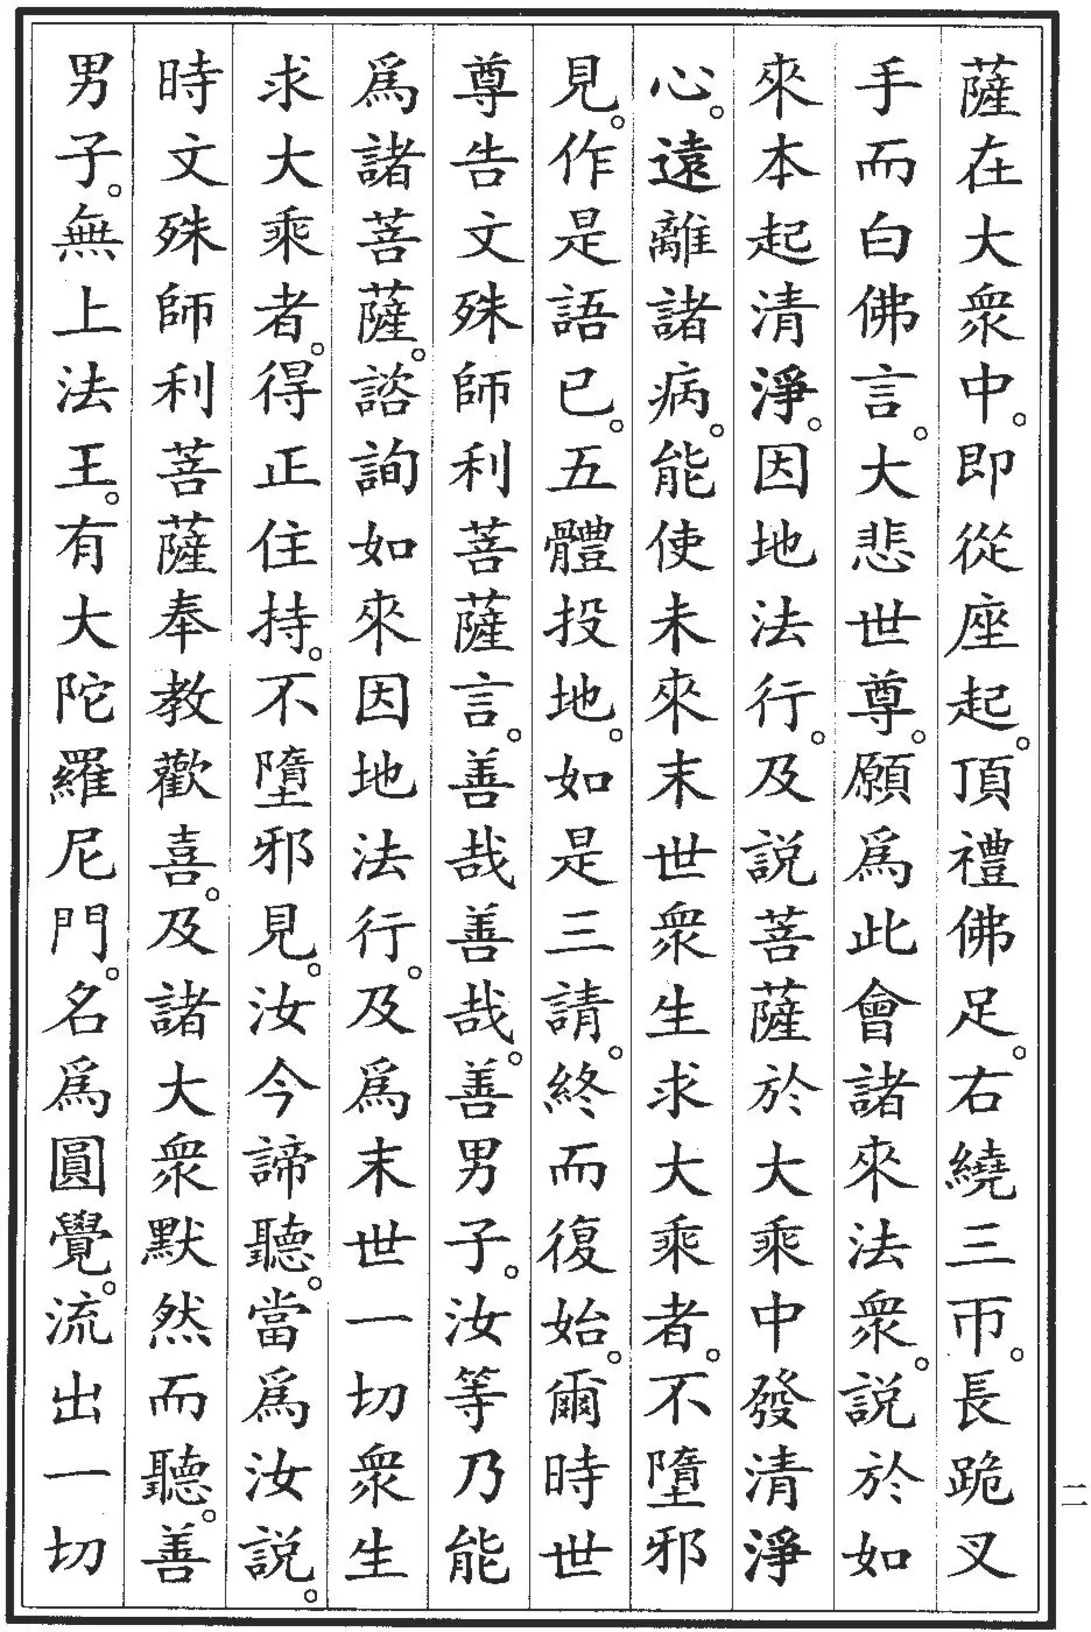 薩在大衆中。即從座起。頂禮佛足。右繞三帀。長跪叉
手而白佛言。大悲世尊。願爲此會諸來法衆。説於如
來本起清淨。因地法行。及説菩薩於大乘中發清淨
心。遠離諸病。能使未來末世衆生求大乘者。不墮邪
見。作是語已。五體投地。如是三請。終而復始。爾時世
尊告文殊師利菩薩言。善哉善哉。善男子。汝等乃能
爲諸菩薩。諮詢如來因地法行。及爲末世一切衆生
求大乘者。得正住持。不墮邪見。汝今諦聽。當爲汝説。
時文殊師利菩薩奉教歡喜。及諸大衆默然而聽。善
男子。無上法王。有大陀羅尼門。名爲圓覺。流出一切
二